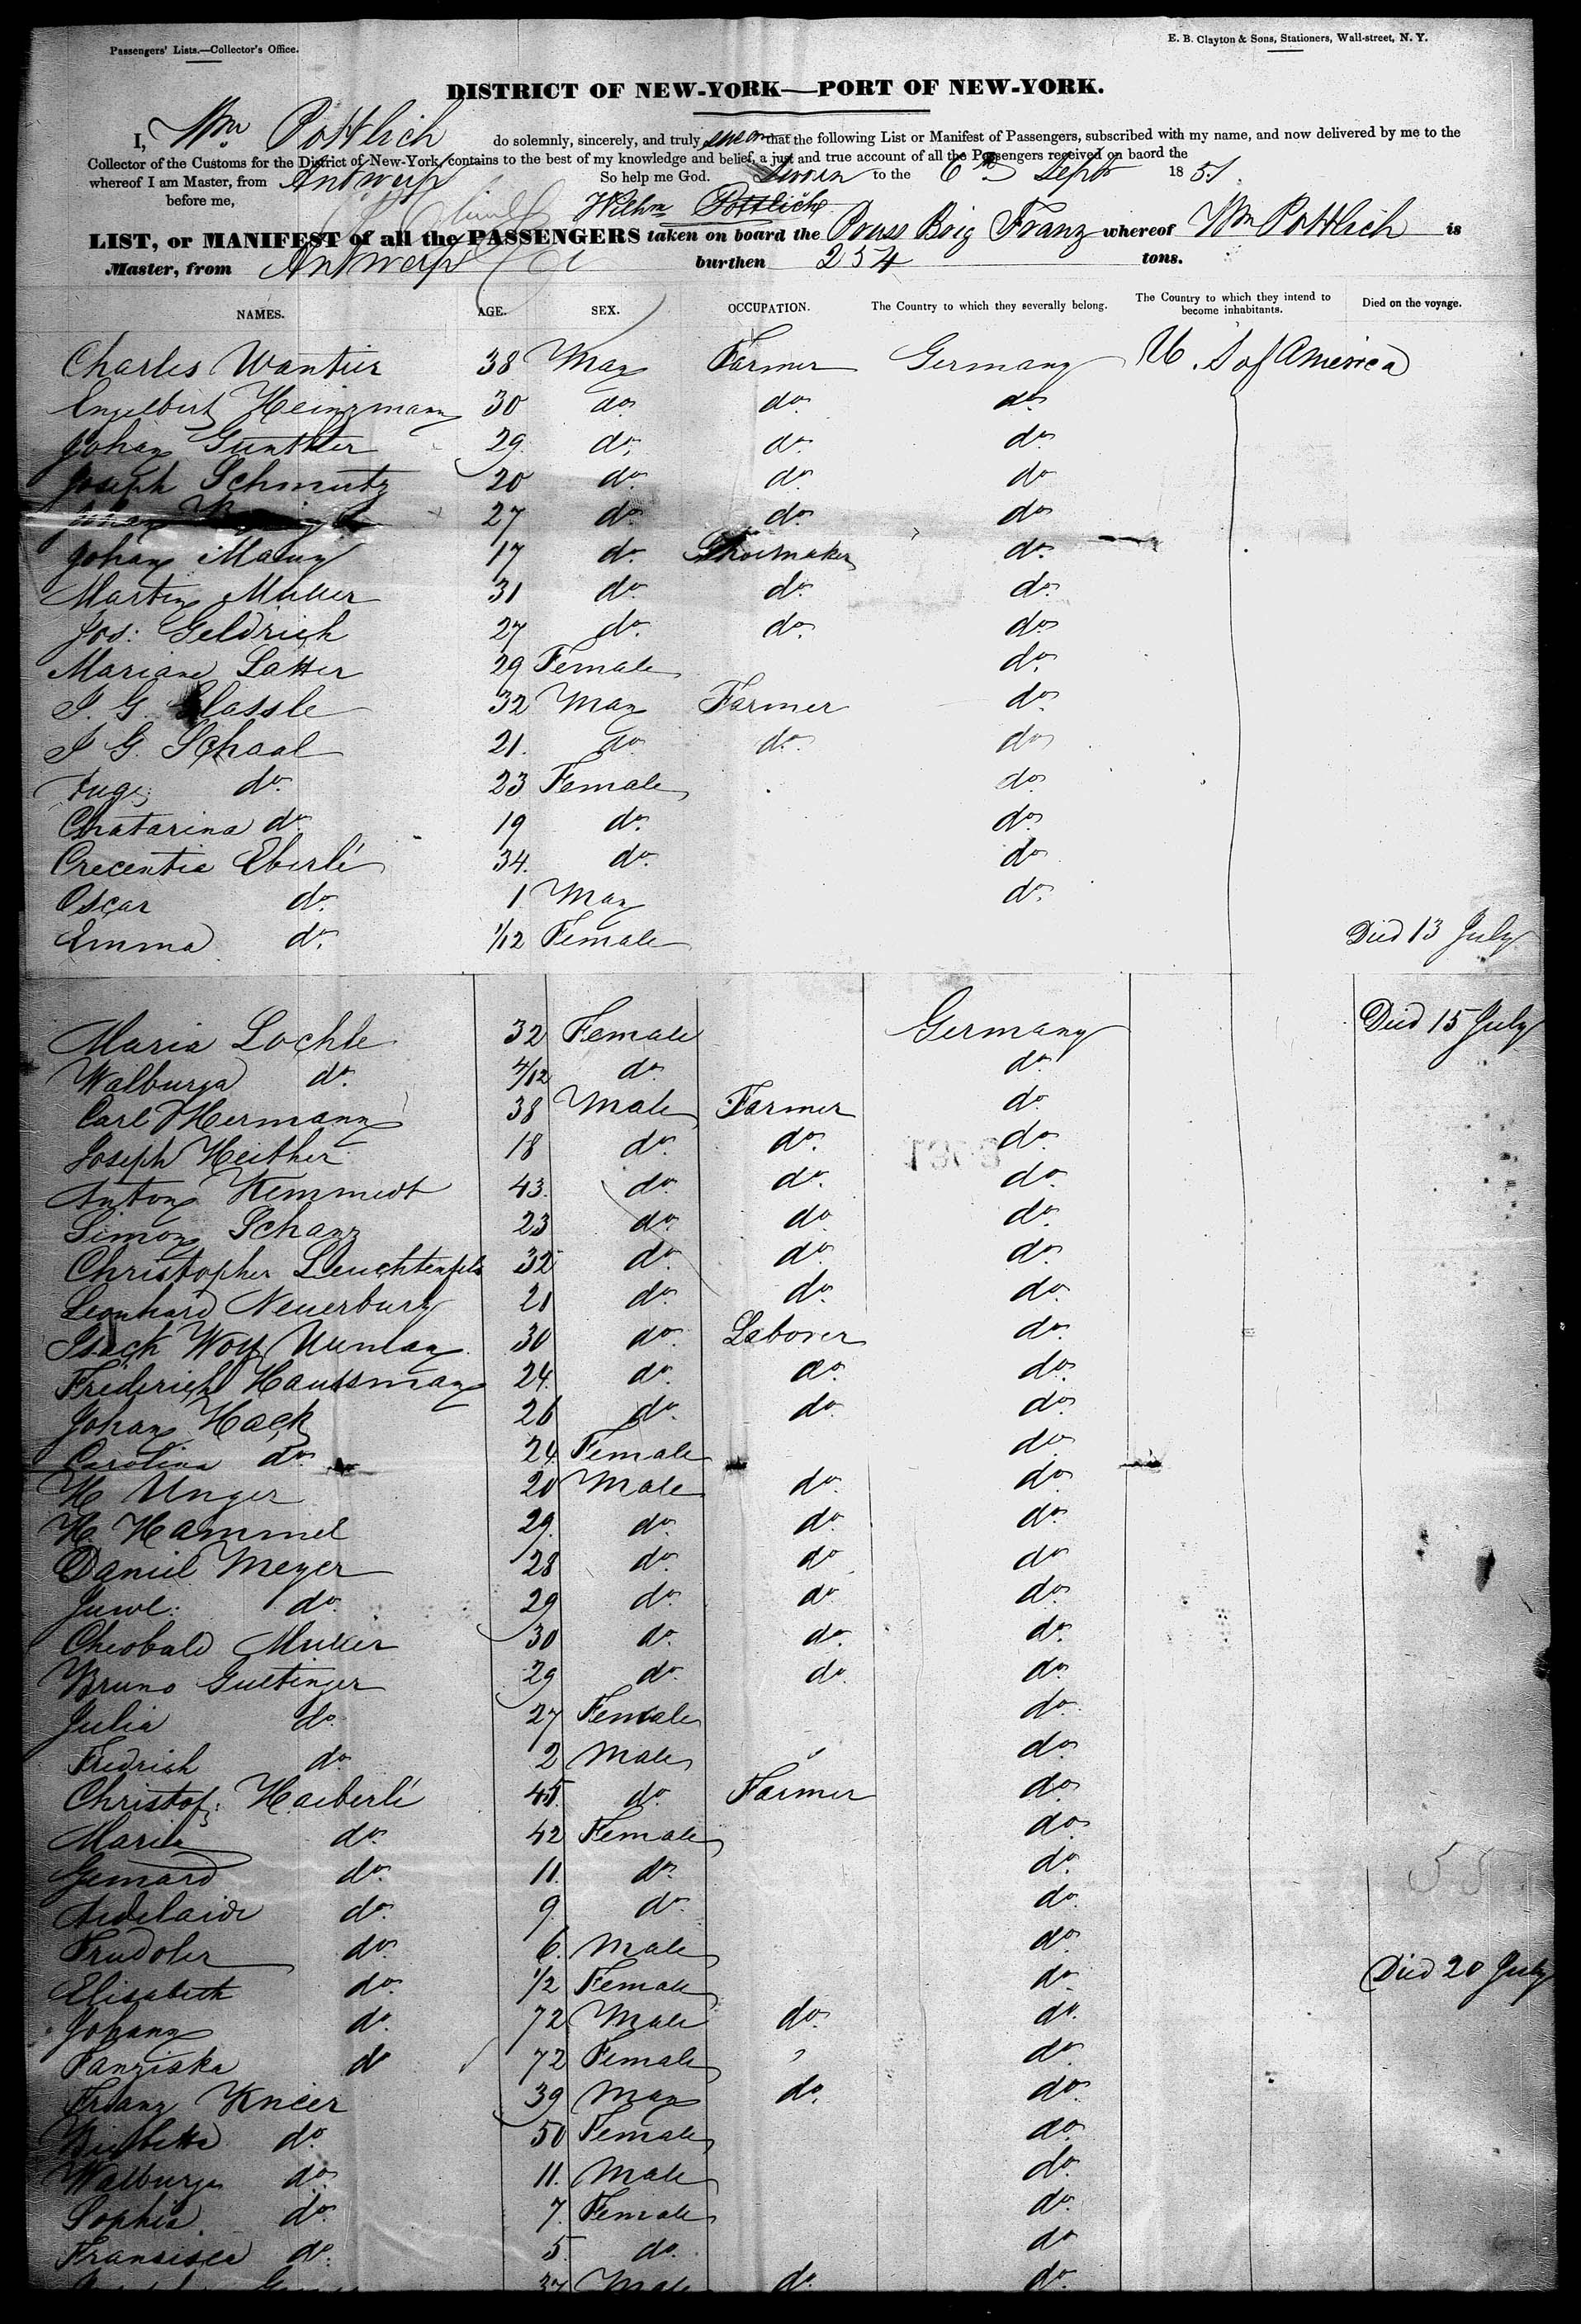 Passengers' Lists.—Collector's Office.
E. B. Clayton & Sons, Stationers, Wall-street, N. Y.
DISTRICT OF NEW-YORK—PORT OF NEW-YORK.
I, Wm. Pottlich do solemnly, sincerely, and truly swear that the following List or Manifest of Passengers, subscribed with my name, and now delivered by me to the
Collector of the Customs for the District of New-York, contains to the best of my knowledge and belief, a just and true account of all the Passengers received on baord the
whereof I am Master, from Antwerp So help me God. Sworn to the 6th Septr 1851.
before me, Wilhm Pottlich
LIST, or MANIFEST of all the PASSENGERS taken on board the Pruss Brig Franz whereof Wm Pottlich is
Master, from Antwerp burthen 254 tons.
NAMES. AGE. SEX. OCCUPATION. The Country to which they severally belong. The Country to which they intend to become inhabitants. Died on the voyage.
Charles Wantier 38 Man Farmer Germany U. S of America
Engelbert Heinzmann 30 do. do. do.
Johan Gunther 29. do. do. do.
Joseph Schmutz 20 do. do. do
Johan 27 do. do. do
Johan 17 do. Shoemaker do.
Martin Muller 31 do. do. do.
Jos: Geldrich 27 do. do. do
Mariane Latter 29 Female do.
J. G. Glassle 32 Man Farmer do.
J G. Schaal 21. do do. do
do. 23 Female do
Chatarina do. 19 do. do.
Crecentia Eberlé 34. do. do
Oscar do. 1 Man do.
Emma do. 1/12 Female Died 13 July
Maria Lochle 32 Female Germany Died 15 July
Walburga do. 4/12 do. do.
Carl Hermann 38 Male Farmer do.
Joseph Heither 18 do. do. do.
Anton Kemmedt 43. do. do. do.
Simon Schanz 23 do. do do.
Christopher Leuchtenfels 32 do. do. do.
Leonhard Neuerburg 21 do. do. do.
Isack Wolf 30 do. Laborer do.
Frederich Haussman 24. do. do. do.
Johan Hack 26 do. do. do.
Carolina do. 24 Female do.
H Unger 20 Male do. do.
H. Hammel 29. do. do. do.
Daniel Meyer 28 do. do do
do. 29 do. do do.
Theobald Muller 30 do. do. do.
Bruno Guetinger 29 do. do. do.
Julia do. 27 Female do.
Fredrich do. 2 Male do.
Christof: Haeberlé 45. do. Farmer do.
Maria do. 42 Female do.
do. 11. do. do.
Adelaide do. 9. do. do.
do. 6. Male do.
Elisabeth do. 1/2 Female do. Died 20 July
Johann do. 72 Male do. do.
Fanziska do 72 Female do.
Franz Kneer 39 Man do. do.
do. 50 Female do.
Walburga do. 11. Male do.
Sophia. do. 7. Female do.
Fransisca do. 5. do. do
37 Male do. do.